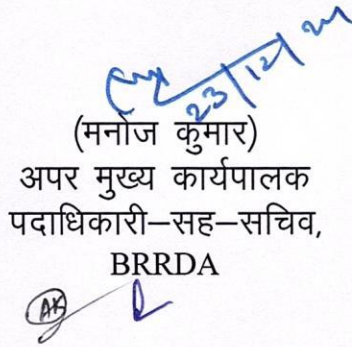 23/12/24
(मनोज कुमार)
अपर मुख्य कार्यपालक
पदाधिकारी–सह–सचिव,
BRRDA
AK